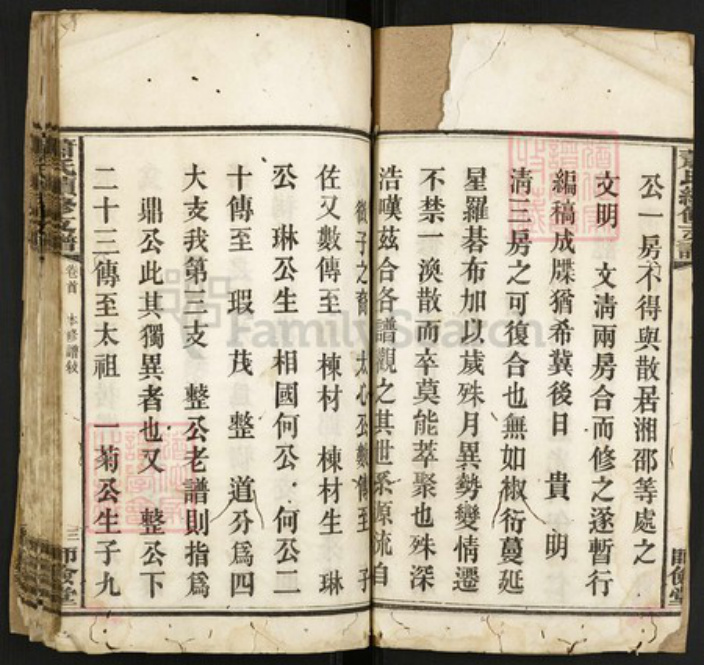 公一房不得與散居湘邵等處之
文明　文清兩房合而修之遂暫行
編稿成牒猶希冀後日　貴　明
清三房之可復合也無如椒衍蔓延
星羅碁布加以歲殊月異勢變情遷
不禁一渙散而卒莫能萃聚也殊深
浩嘆茲合各譜觀之其世系原流自
後子之裔　太心公數傳至　子
佐又數傳至　棟材　棟材生　琳
公　琳公生　相國何公何公二
十傳至　瑕　茂　整　道分爲四
大支我第三支　整公老譜則指爲
鼎公此其獨異者也又　整公下
二十三傳至太祖　一菊公生子九
蕭氏續修支譜
卷首　本修譜敘
三
師儉堂
FamilySearch